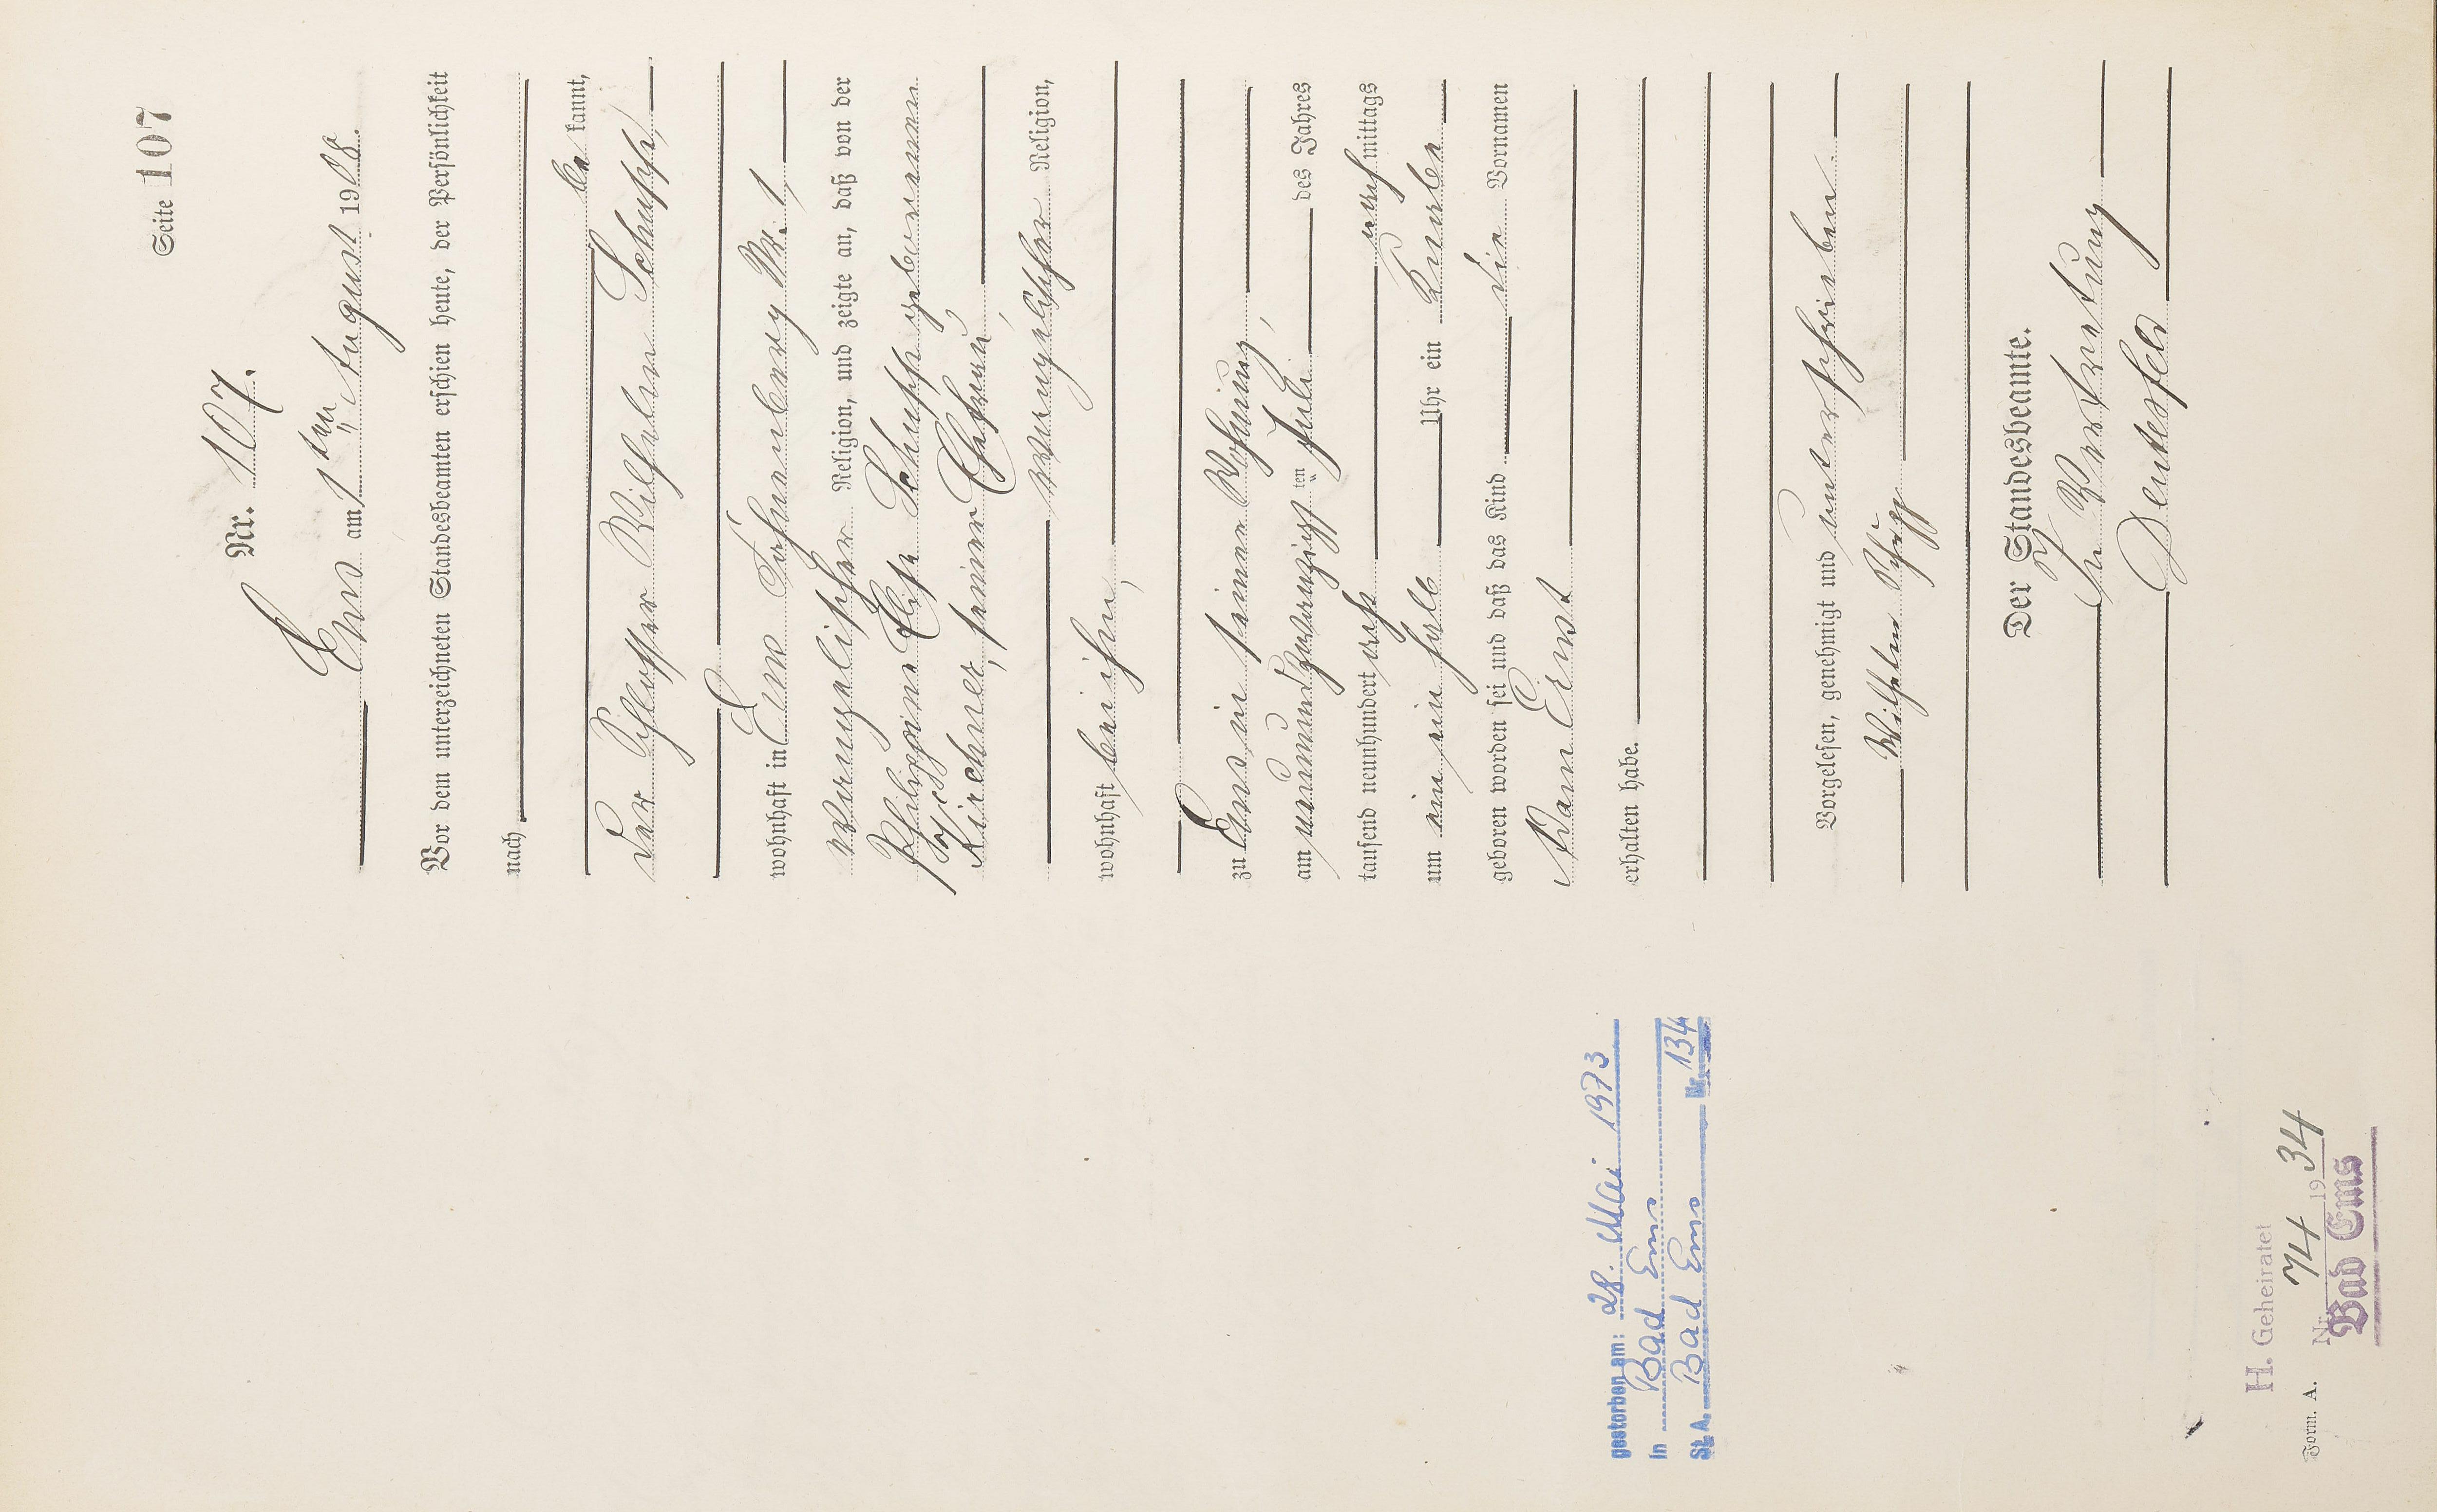 Seite 107
Nr. 107.
Ems am 1ten August 1908.
Vor dem unterzeichneten Standesbeamten erschien heute, der Persönlichkeit
nach
be kannt,
der Schlosser Wilhelm Schupp,
wohnhaft in Ems Nr. 1
evangelischer Religion, und zeigte an, daß von der
Philippine Elise Schupp geborenen
Kirchner, seiner Ehefrau,
evangelischer Religion,
wohnhaft bei ihm,
zu Ems in seiner Wohnung,
am neunundzwanzigsten Juli des Jahres
tausend neunhundert acht nachmittags
um ein ein halb Uhr ein Knabe
geboren worden sei und daß das Kind die Vornamen
Ernst
erhalten habe.
Vorgelesen, genehmigt und unterschrieben.
Wilhelm Schupp
Der Standesbeamte.
In Vertretung
gestorben am: 28. Mai 1973
in Bad Ems
St. A. Bad Ems Nr. 134
H. Geheiratet
Form. A. Nr. 74 1934
Bad Ems